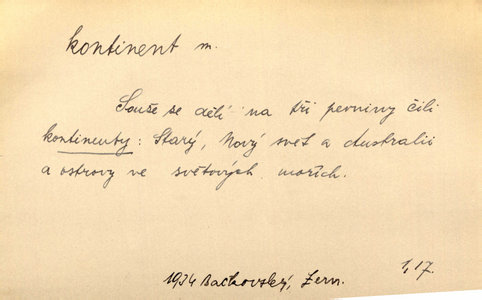 kontinent m.
Souše se dělí na tři pevniny čili
kontinenty: Starý, Nový svet a Australii
a ostrovy ve světových mořích.
1934 Bačkovský, Zem.
1,17.